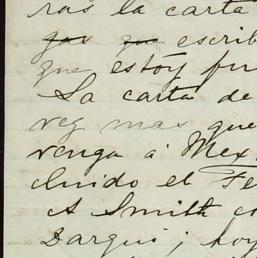 ras la carta
escrib
que estoy fu
La carta de
vez mas que
venga á Mex
cluido el Fe
A Smith co
Darqui; hoy